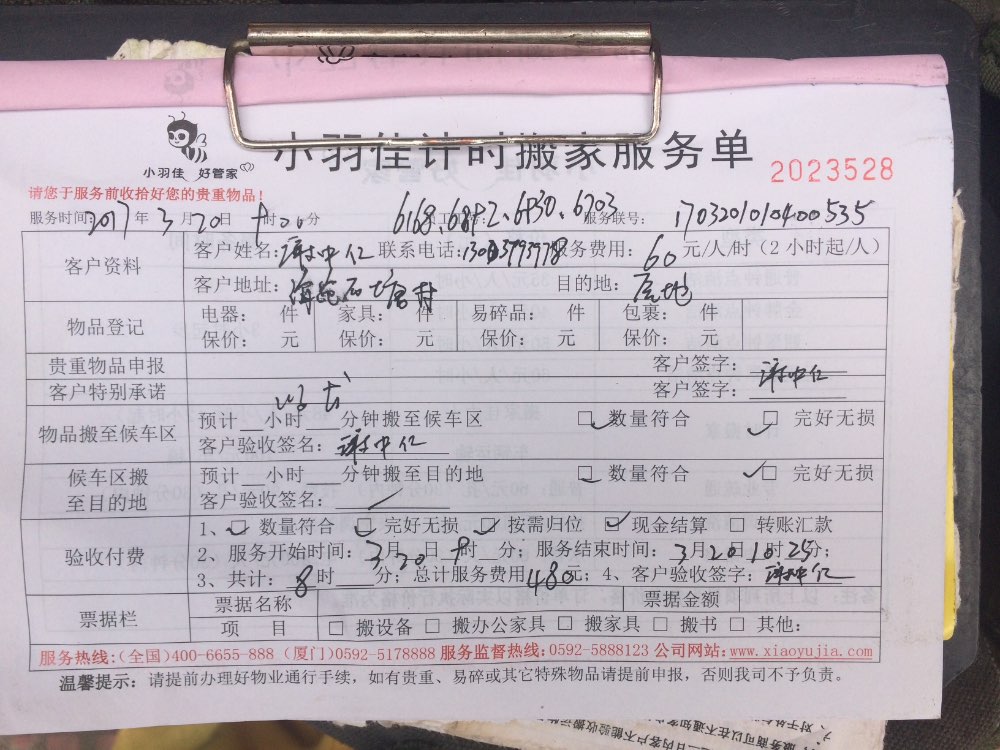 小羽佳 好管家
小羽佳计时搬家服务单
2023528
请您于服务前收拾好您的贵重物品！
服务时间: 2017 年 3 月 20 日 时 分 6168、6892、6930、6703 服务联号: 170320101040053 5
客户资料
客户姓名: 谢中仁 联系电话: 服务费用: 60 元/人/时 (2 小时起/人)
客户地址: 目的地:
物品登记
电器: 件 家具: 件 易碎品: 件 包裹: 件
保价: 元 保价: 元 保价: 元 保价: 元
贵重物品申报 客户签字: 谢中仁
客户特别承诺 客户签字:
物品搬至候车区
预计 小时 分钟搬至候车区 数量符合 完好无损
客户验收签名: 谢中仁
候车区搬至目的地
预计 小时 分钟搬至目的地 数量符合 完好无损
客户验收签名:
验收付费
1、 数量符合 完好无损 按需归位 现金结算 转账汇款
2、服务开始时间: 3 月 20 日 9 时 分; 服务结束时间: 3 月 20 日 10 时 25 分;
3、共计: 8 时 分; 总计服务费用 480 元; 4、客户验收签字: 谢中仁
票据栏
票据名称 票据金额
项 目 搬设备 搬办公家具 搬家具 搬书 其他:
服务热线:(全国)400-6655-888 (厦门)0592-5178888 服务监督热线:0592-5888123 公司网站:www.xiaoyujia.com
温馨提示: 请提前办理好物业通行手续，如有贵重、易碎或其它特殊物品请提前申报，否则我司不予负责。